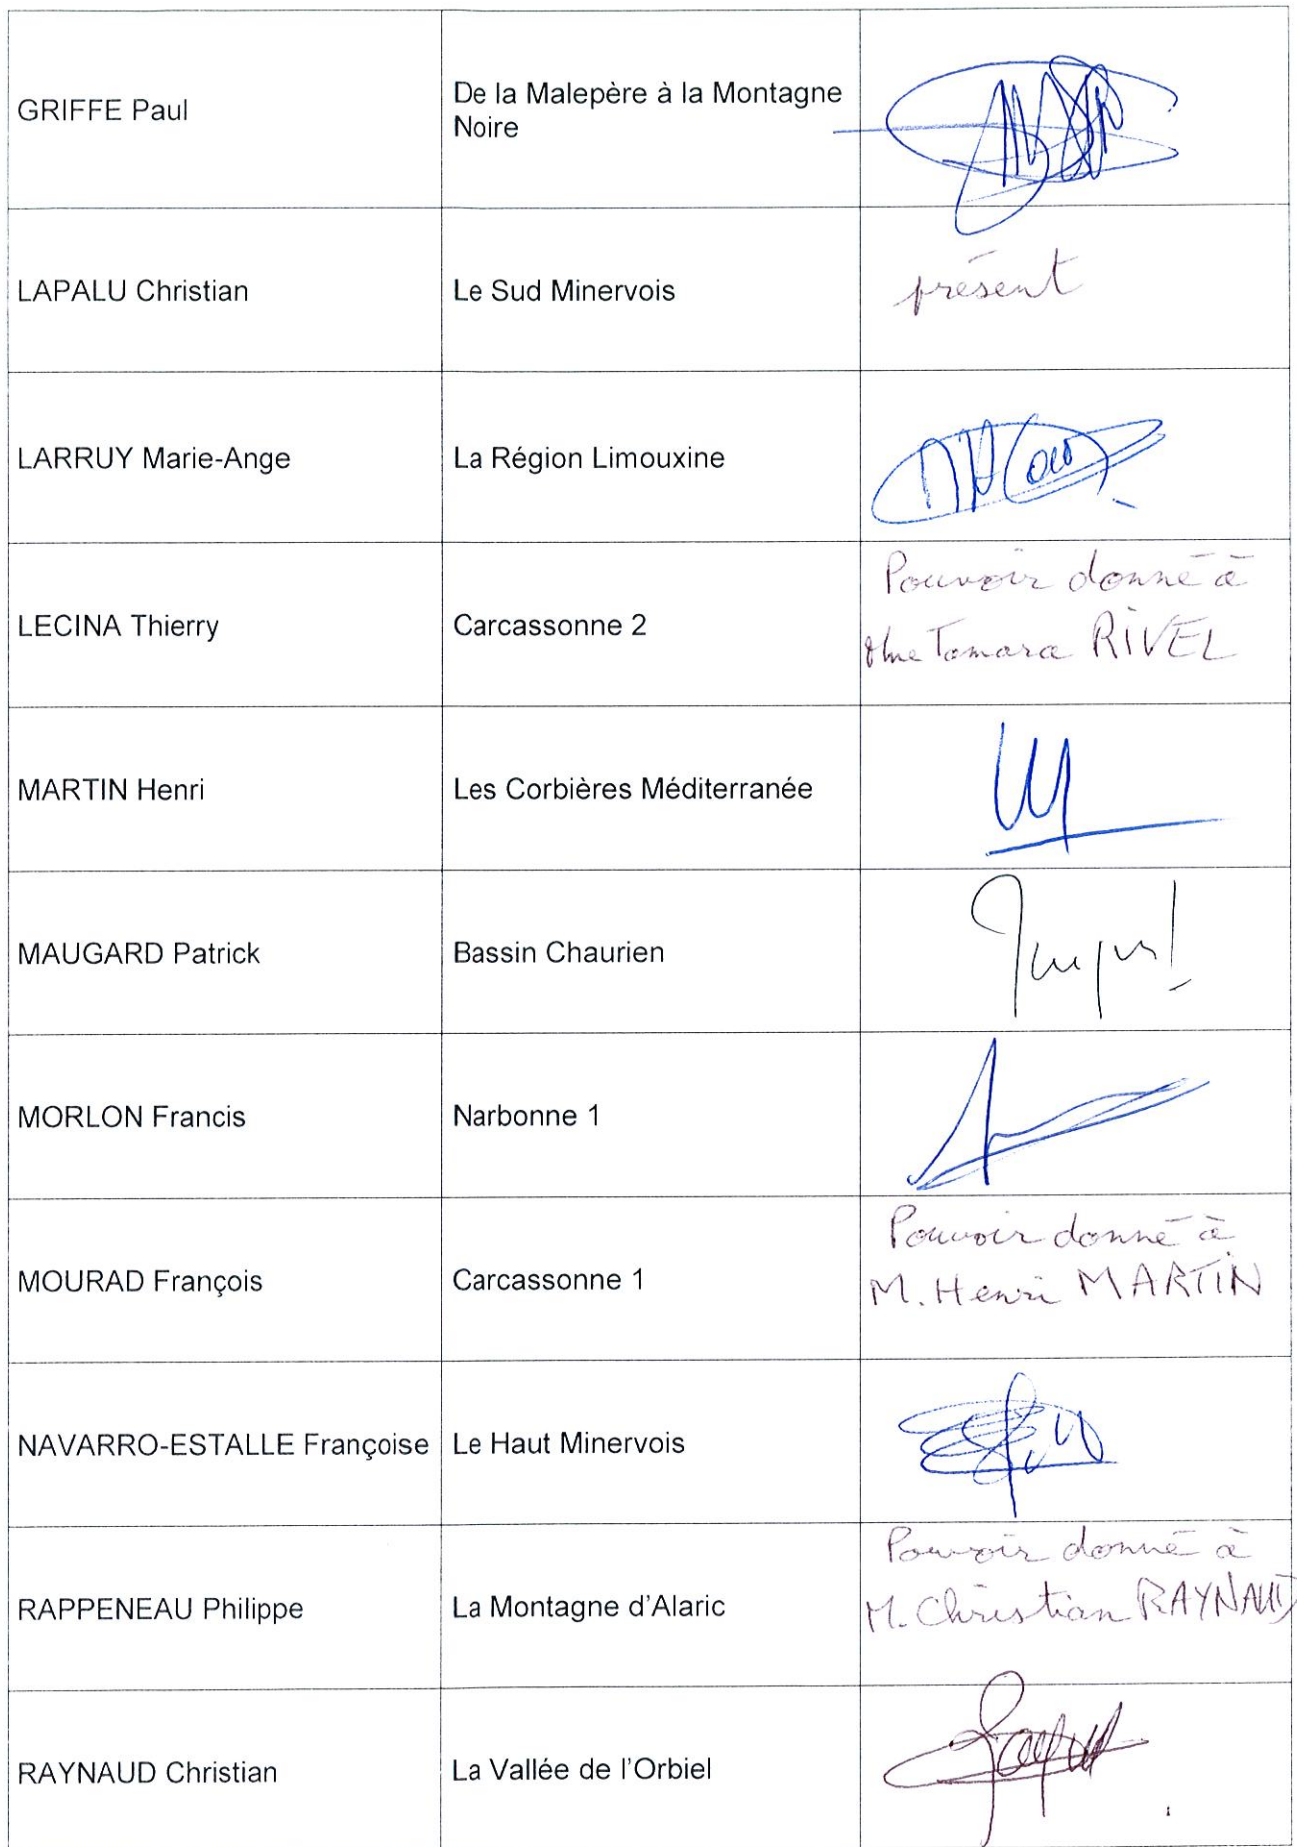 GRIFFE Paul
De la Malepère à la Montagne
Noire
LAPALU Christian
Le Sud Minervois
présent
LARRUY Marie-Ange
La Région Limouxine
LECINA Thierry
Carcassonne 2
Pouvoir donné à
Mme Tamara RIVEL
MARTIN Henri
Les Corbières Méditerranée
MAUGARD Patrick
Bassin Chaurien
MORLON Francis
Narbonne 1
MOURAD François
Carcassonne 1
Pouvoir donné à
M. Henri MARTIN
NAVARRO-ESTALLE Françoise
Le Haut Minervois
RAPPENEAU Philippe
La Montagne d'Alaric
Pouvoir donné à
M. Christian RAYNAUD
RAYNAUD Christian
La Vallée de l'Orbiel